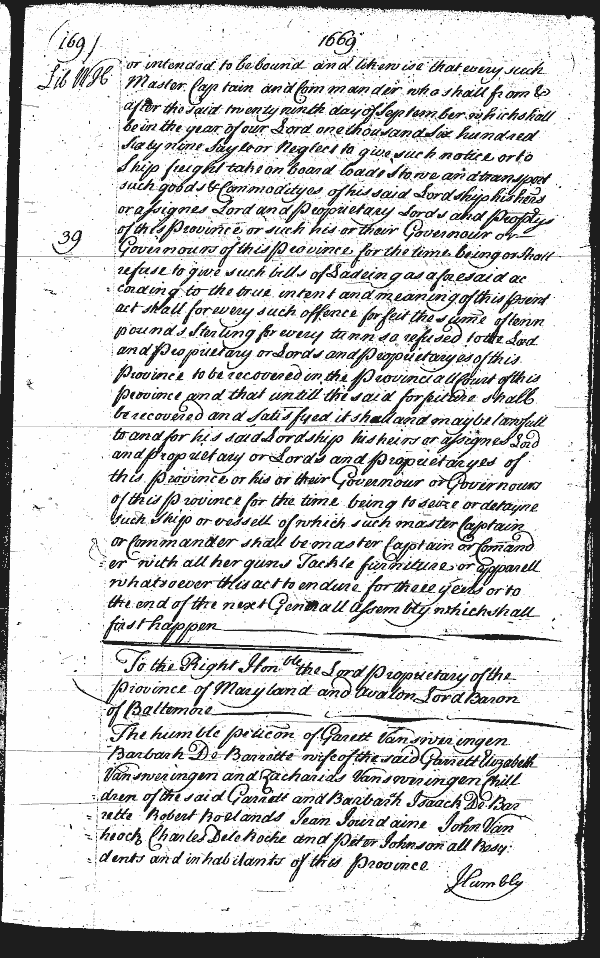 (169)
1669
Lib WH
or intended to be bound and likewise that every such
Master Captain and Commander who shall from &
after the said twenty ninth day of September which shall
be in the year of our Lord one thousand six hundred
Sixty nine fayle or Neglect to give such notice or to
Ship freight take on board loade stowe and transport
such goods & Commodityes of his said Lordship his heirs
or assignes Lord and Proprietary Lords and Proptys
of this Province or such his or their Governour or
39
Governours of this Province for the time being or shall
refuse to give such bills of Ladeing as aforesaid ac
cording to the true intent and meaning of this psent
act shall for every such offence forfeit the sume of tenn
pounds Sterling for every tunn so refused to the Lord
and Proprietary or Lords and Proprietaryes of this
Province to be recovered in the Provinciall Court of this
Province and that untill the said forfeiture shall
be recovered and satisfyed it shall and may be lawfull
to and for his said Lordship his heirs or assignes Lord
and Proprietary or Lords and Proprietaryes of
this Province or his or their Governour or Governours
of this Province for the time being to seize or detayne
such Ship or vessell of which such master Captain
or Commander shall be master Captain or Comand
er with all her guns Tackle furniture or apparell
whatsoever this act to endure for three years or to
the end of the next Generall assembly which shall
first happen
To the Right Honble the Lord Proprietary of the
Province of Maryland and Avalon Lord Baron
of Baltemore
The humble peticon of Garett Vansweringen
Barbarh De Barrette wife of the said Garrett Elizabeth
Vansweringen and Zacharias Vansweringen Chill
dren of the said Garrett and Barbarh Isaack De Bar
rette Robert Roelands Jean Jourdaine John Van
heock Charles Dele Roche and Peter Johnson all Resy
dents and inhabitants of this Province
Humbly